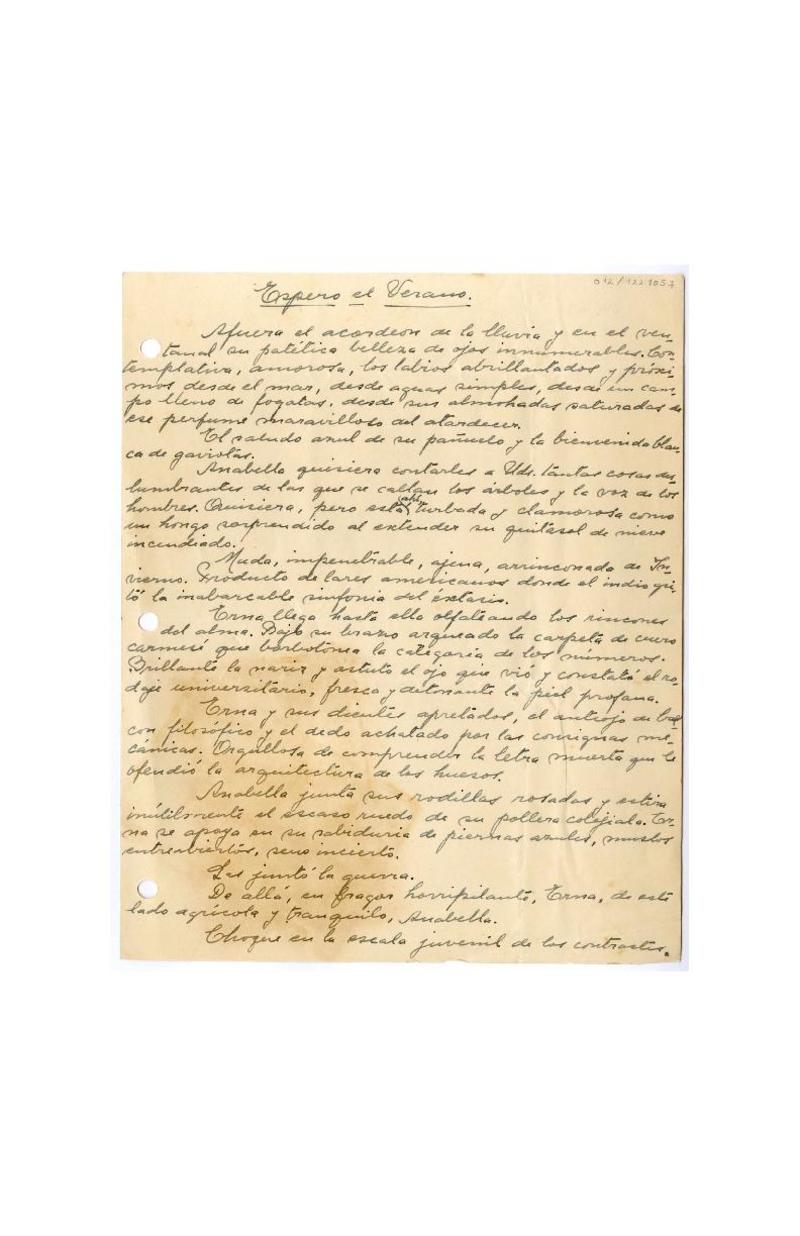 012/1221057
Espero el Verano.
Afuera el acordeón de la lluvia y en el ven-
tanal su patética belleza de ojos innumerables. Con-
templativa, amorosa, los labios abrillantados y próxi-
mos desde el mar, desde aguas simples, desde un cam-
po lleno de fogatas, desde sus almohadas saturadas de
ese perfume maravilloso del atardecer.
El saludo azul de su pañuelo y la bienvenida blan-
ca de gaviotas.
Anabella quisiera contarles a Uds. tantas cosas des-
lumbrantes de las que se callan los árboles y la voz de los
hombres. Quisiera, pero está ahí, turbada y clamorosa como
un hongo sorprendido al extender su quitasol de nieve
incendiado.
Muda, impenetrable, ajena, arrinconada de In-
vierno. Producto de lares americanos donde el indio gri-
tó la inabarcable sinfonía del éxtasis.
Erna llega hasta ella olfateando los rincones
del alma. Bajo su brazo arqueado la carpeta de cuero
carmesí que borbotonea la categoría de los números.
Brillante la nariz y astuto el ojo que vió y constató el ro-
daje universitario, fresca y detonante la piel profana.
Erna y sus dientes apretados, el anteojo de
con filosófico y el dedo achatado por las consignas me-
cánicas. Orgullosa de comprender la letra muerta que le
ofendió la arquitectura de los huesos.
Anabella junta sus rodillas rosadas y estira
inútilmente el escaso ruedo de su pollera colegiala. Er-
na se apoya en su sabiduría de piernas azules, muslos
entreabiertos, seno incierto.
Las juntó la guerra.
De allá, en fragor horripilante, Erna, de este
lado agrícola y tranquilo, Anabella.
Choque en la escala juvenil de los contrastes.